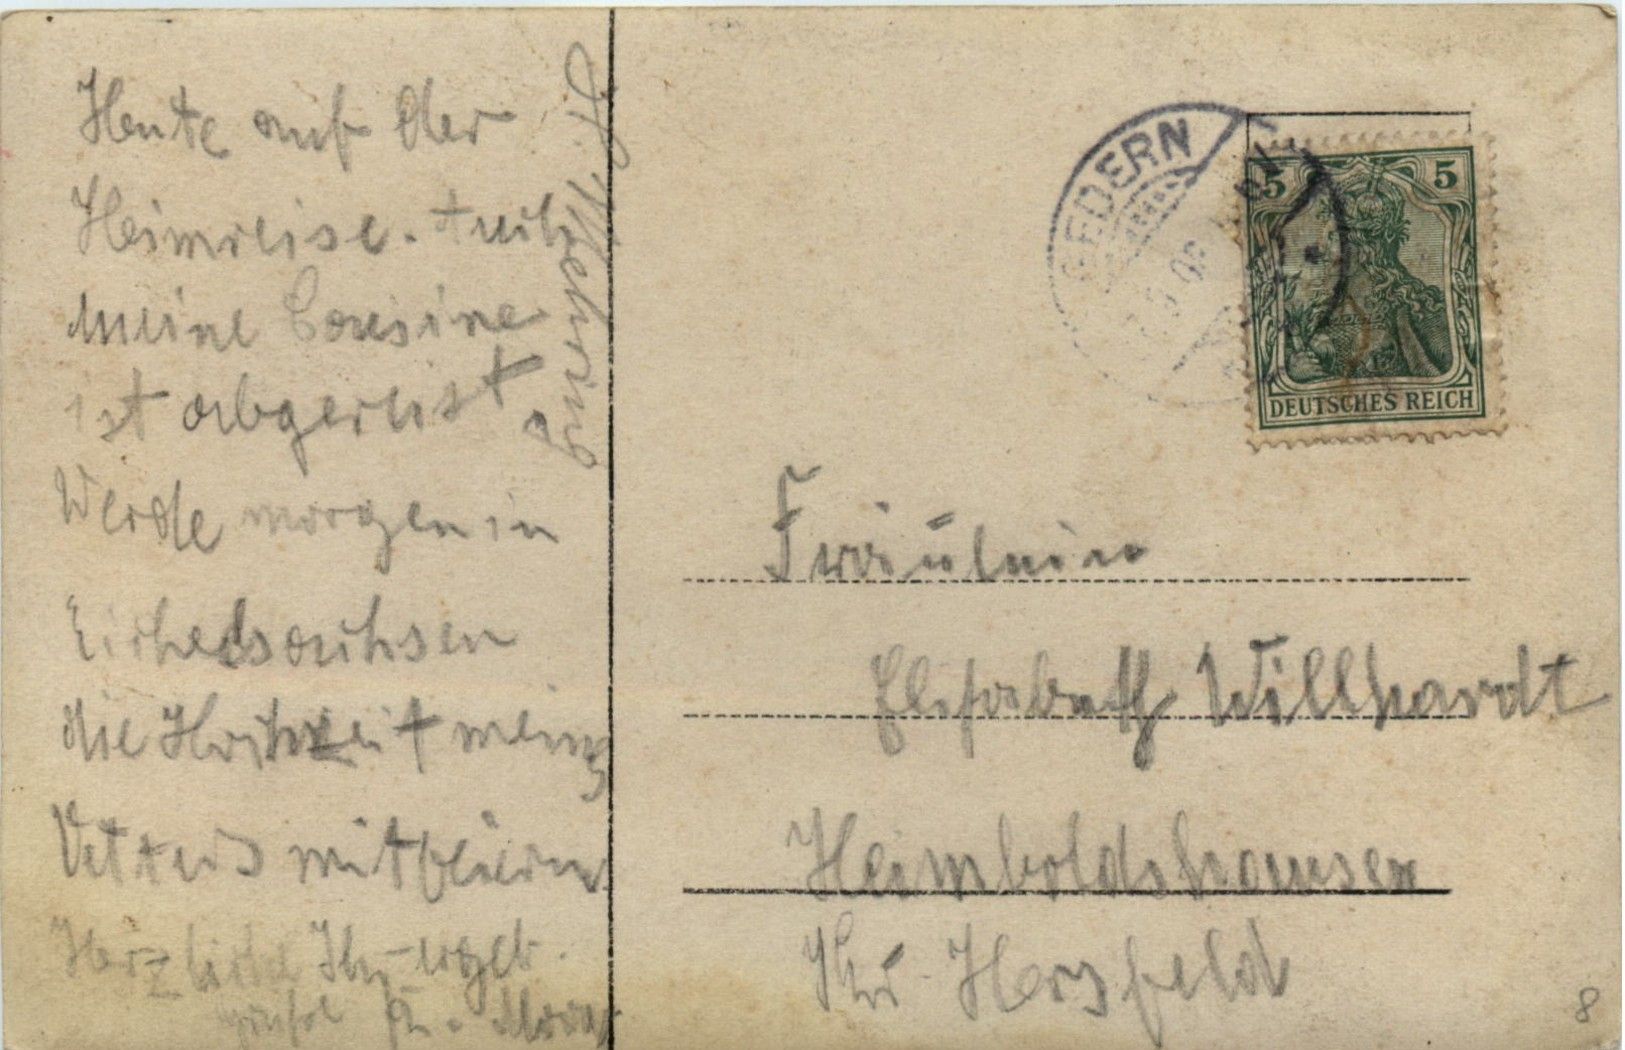 Heute auf der
Heimreise. Auch
meine Cousine
ist abgereist.
Werde morgen in
die Hochzeit meines
Vetters mitfeiern
Herzliche
GEDERN
5 5
DEUTSCHES REICH
Fräulein
Elisabeth Willhardt
Heimboldshausen
Kr. Hersfeld
8